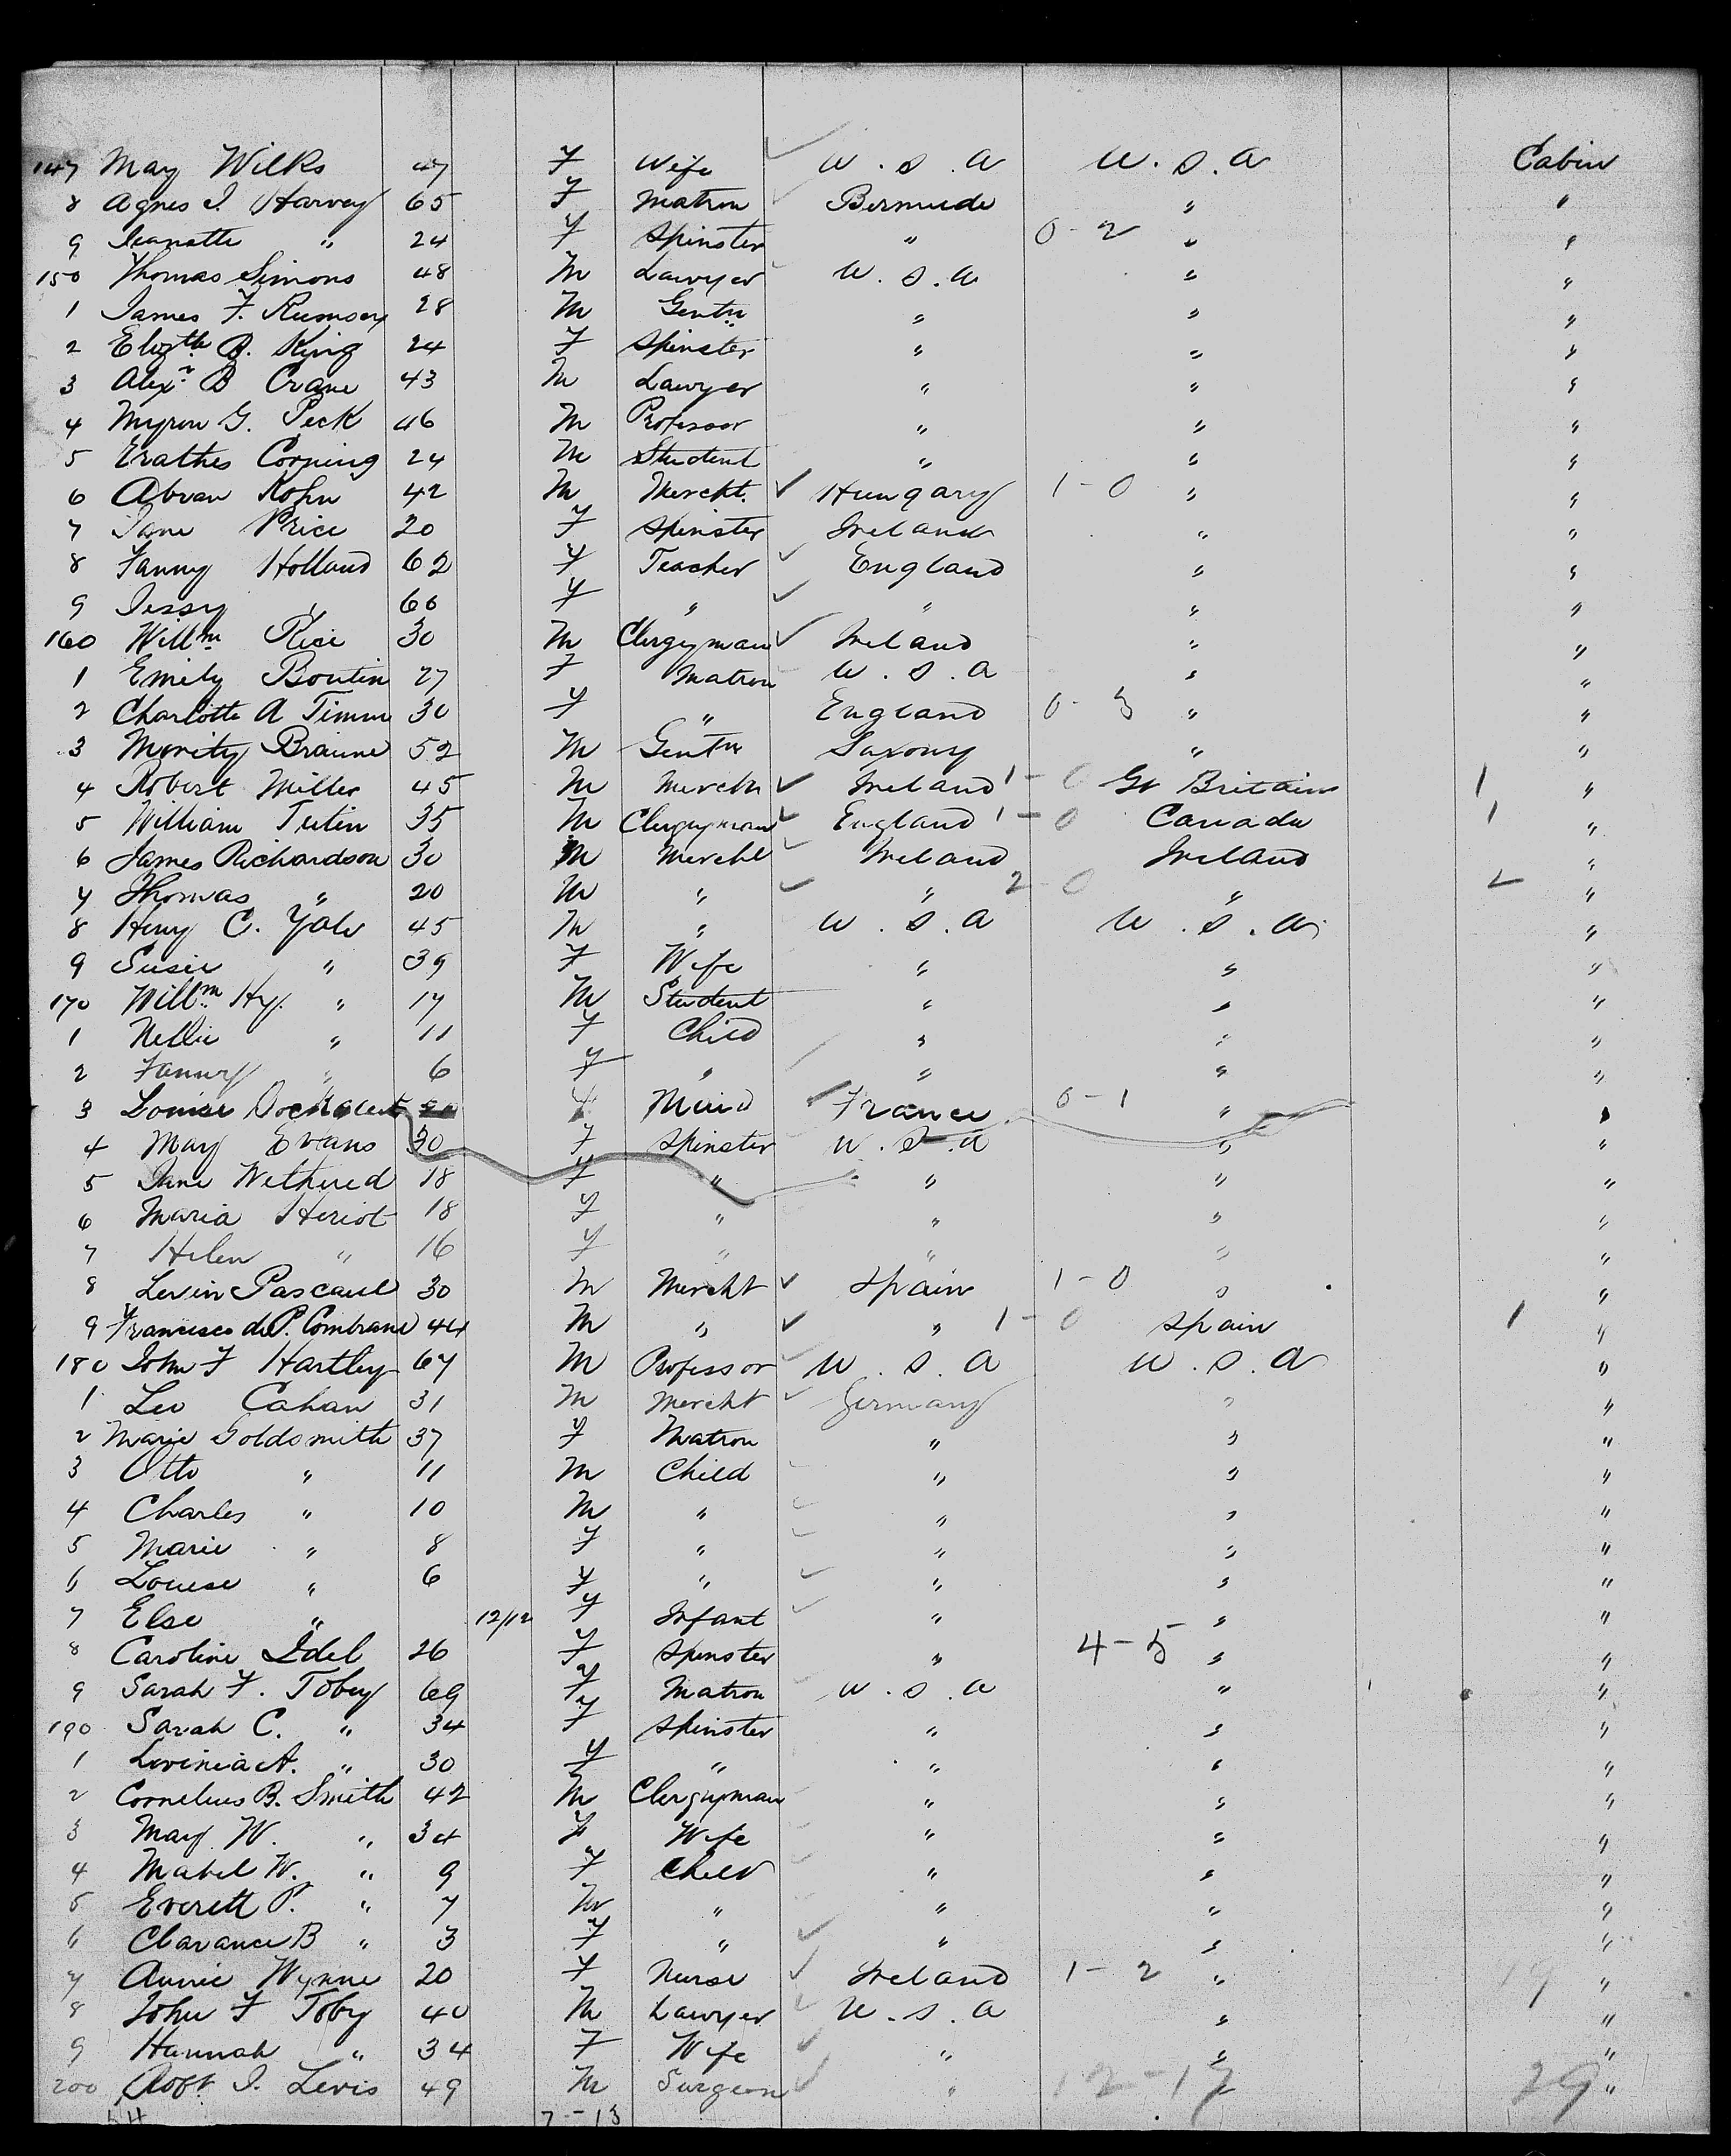 147 May Wilks 47 F Wife U.S.A U.S.A Cabin
8 Agnes I. Harvey 65 F Matron Bermuda " "
9 Jeanette " 24 F Spinster " 0-2 " "
150 Thomas Simons 48 M Lawyer U.S.A " "
1 James F. Rumsey 28 M Gentn " " "
2 Elizth B. King 24 F Spinster " " "
3 Alexr B Crane 43 M Lawyer " " "
4 Myron G. Peck 46 M Professor " " "
5 Erathes Corning 24 M Student " " "
6 Abram Kohn 42 M Mercht. Hungary 1-0 " "
7 Jane Price 20 F Spinster Ireland " "
8 Fanny Holland 62 F Teacher England " "
9 Jessy " 60 F " " " "
160 Willm Rice 30 M Clergyman Ireland " "
1 Emily Boutin 27 F Matron U.S.A " "
2 Charlotte A Timm 30 F " England 0-3 " "
3 Moritz Braune 52 M Gentn Saxony " "
4 Robert Miller 45 M Mercht Ireland 1-0 Gt Britain 1 "
5 William Tutin 35 M Clergyman England 1-0 Canada 1 "
6 James Richardson 30 M Mercht Ireland Ireland "
7 Thomas " 20 M " " 2-0 " 2 "
8 Heny C. Yale 45 M " U.S.A U.S.A. "
9 Susie " 39 F Wife " " "
170 Willm Hy. " 17 M Student " " "
1 Nellie " 11 F Child " " "
2 Fanny " 6 F " " " "
3 Louise F Maid France 0-1 " "
4 May Evans 30 F Spinster U.S.A " "
5 Jane Wethered 18 F " " " "
6 Maria Heriot 18 F " " " "
7 Helen " 16 F " " " "
8 Levin Pascaul 30 M Mercht Spain 1-0 " "
9 Francisco de P. 44 M " " 1-0 Spain 1 "
180 John F Hartley 67 M Professor U.S.A U.S.A "
1 Leo Cahan 31 M Mercht Germany " "
2 Marie Goldsmith 37 F Matron " " "
3 Otto " 11 M Child " " "
4 Charles " 10 M " " " "
5 Marie " 8 F " " " "
6 Louise " 6 F " " " "
7 Else " 12/12 F Infant " " "
8 Caroline Idel 26 F Spinster " 4-5 " "
9 Sarah F. Tobey 69 F Matron U.S.A " "
190 Sarah C. " 34 F Spinster " " "
1 Lovinia A. " 30 F " " " "
2 Cornelius B. Smith 42 M Clergyman " " "
3 May W. " 34 F Wife " " "
4 Mabel W. " 9 F Child " " "
5 Everett P. " 7 M " " " "
6 Clarance B " 3 F " " " "
7 Annie Wynne 20 F Nurse Ireland 1-2 " "
8 John F Toby 40 M Lawyer U.S.A " "
9 Hannah " 34 F Wife " " "
200 Robt. I. Levis 49 M Surgeon " 12-17 " 29 "
54 7-13